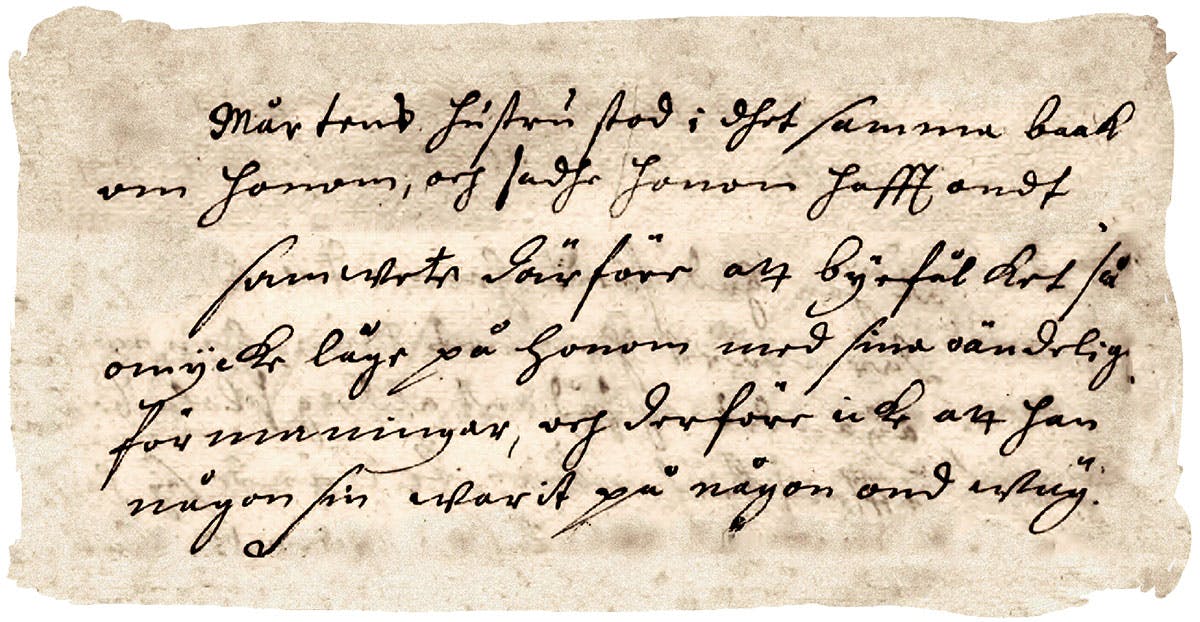 Mårtens hustru stod i dhet samma baak
om honom, och sadhe honom hafft ondt
samwete därföre att byefålket så
mycke låge på honom med sine oändelig
förmaningar, och derföre icke att han
någon sin warit på någon ond wäg.